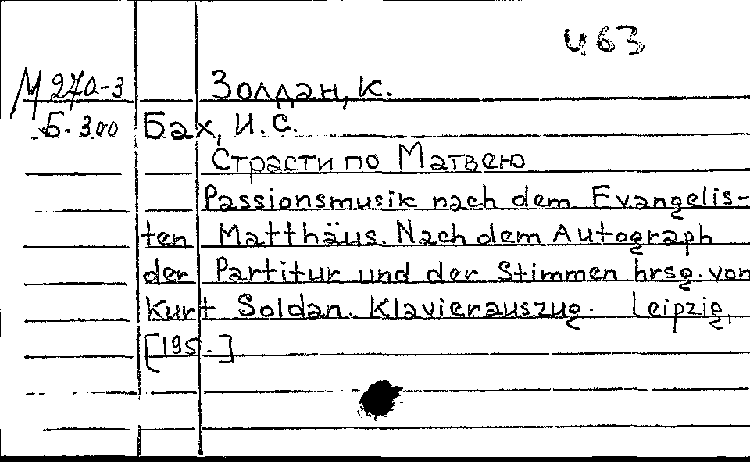 ч63
М 270-3 Золдан, К.
Б. 300 Бах, И. С.
Страсти по Матвею
Passionsmusik nach dem Evangelis-
ten Matthäus. Nach dem Autograph
der Partitur und der Stimmen hrsg. von
Kurt Soldan. Klavierauszug. Leipzig,
[195.]